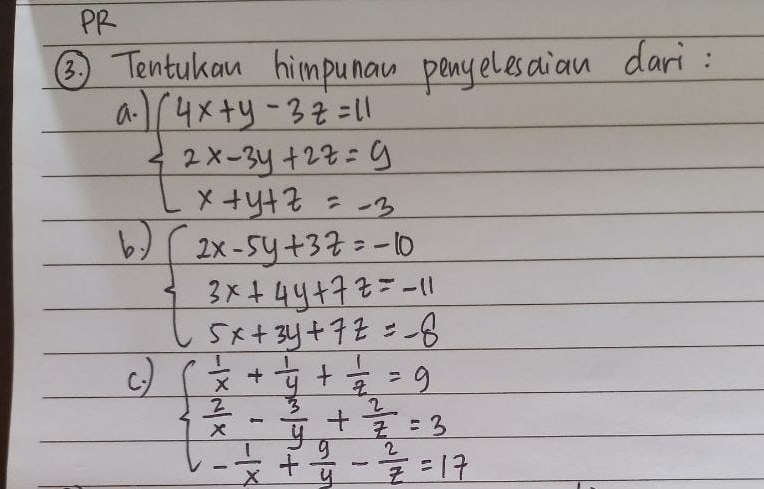 PR
3. Tentukan himpunan penyelesaian dari :
a.) 4x+y-3z=11
2x-3y+2z=9
x+y+z=-3
b.) 2x-5y+3z=-10
3x+4y+7z=-11
5x+3y+7z=-8
c.) 1/x + 1/y + 1/z = 9
2/x - 3/y + 2/z = 3
-1/x + 9/y - 2/z = 17